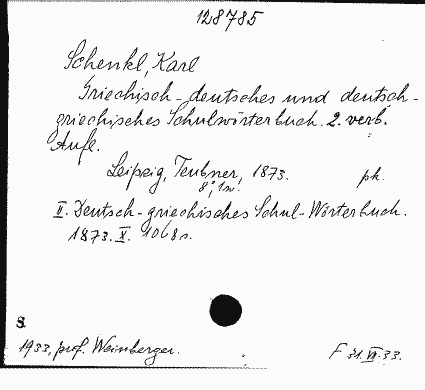 128785
Schenkl, Karl
Griechisch-deutsches und deutsch-
griechisches Schulwörterbuch. 2. verb.
Aufl.
Leipzig, Teubner, 1873. pk.
8°, 1w.
II. Deutsch-griechisches Schul-Wörterbuch.
1873. X. 1068 s.
8.
1933, prof. Weinberger. F 31.VII.33.